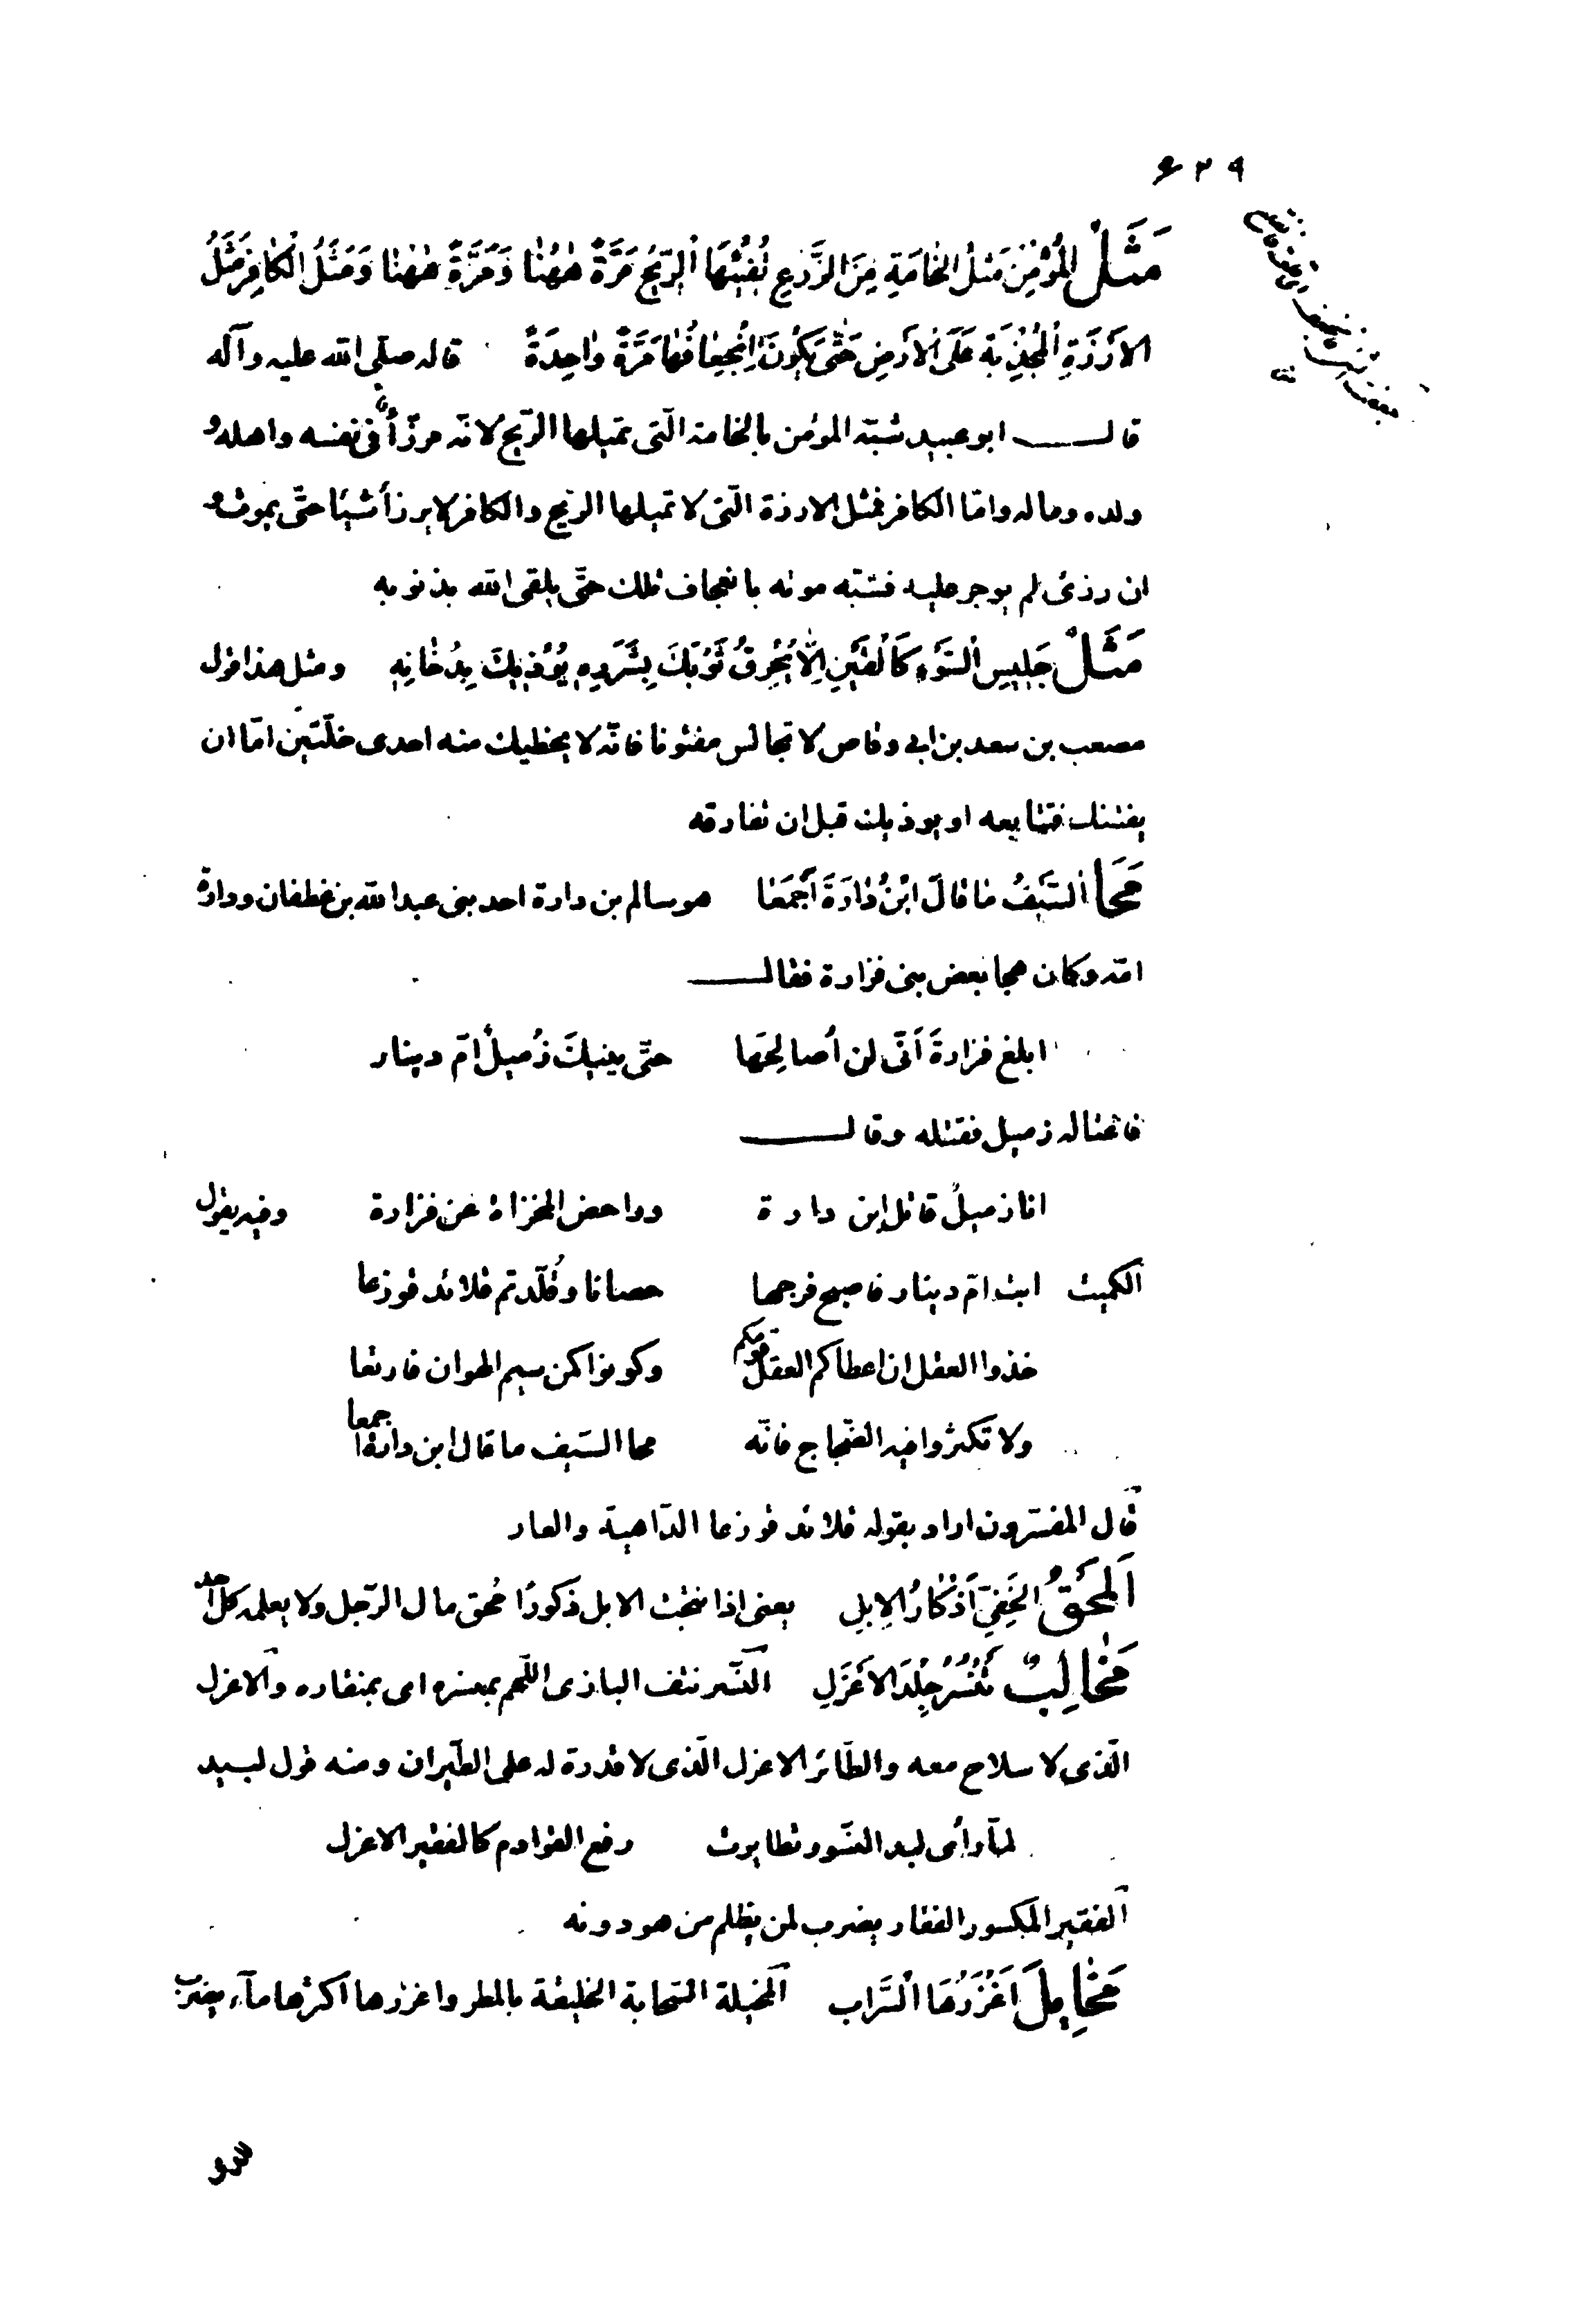 ۶۲۹
مَثَلُ الْمُؤْمِنِ مَثَلُ الْخَامَةِ مِنَ الزَّرْعِ تُفَيِّئُهَا الرِّيحُ مَرَّةً هٰهُنَا وَمَرَّةً هٰهُنَا وَمَثَلُ الْكَافِرِ مَثَلُ
الْأَرْزَةِ الْمُجْذِيَةِ عَلَى الْأَرْضِ حَتَّى يَكُونَ انْجِعَافُهَا مَرَّةً وَاحِدَةً قاله صلّى الله عليه وآله
قال ابو عبيد شبّه المؤمن بالخامة الّتى تميلها الرّيح لانّه مرزّأ فى نفسه واهله و
ولده وماله وامّا الكافر فمثل الارزة الّتى لا تميلها الريح والكافر لا يرزأ شيئا حتّى يموت و
ان رزئ لم يوجر عليه فشبّه موته بانجعاف تلك حتّى يلقى الله بذنوبه
مَثَلُ جَلِيسِ السَّوْءِ كَالْقَيْنِ إِلَّا يُحْرِقْ ثَوْبَكَ بِشَرَرِهِ يُؤْذِيكَ بِدُخَانِهِ ومثل هذا قول
مصعب بن سعد بن ابى وقاص لا تجالس مفتونا فانّه لا يخطيك منه احدى خلّتين امّا ان
يفتنك فتتابعه او يوذيك قبل ان تفارقه
مَحَا السَّيْفُ مَا قَالَ ابْنُ دَارَةَ أَجْمَعَا هو سالم بن دارة احد بنى عبد الله بن غطفان ودارة
امّه وكان هجا بعض بنى فزارة فقال
ابلغ فزارةَ أنّى لن أصالِحَها حتّى ينيكَ زُميلٌ امّ دينار
فاغتاله زميل فقتله وقال
انا زميلٌ قاتل ابن دارة وراحض المخزاة عن فزارة وفيه يقول
الكميت ابت امّ دينار فاصبح فرجها حصانا وقُلّدتم قلائد قوزعا
خذوا العقل ان اعطاكم العقل قومكم وكونوا كمن سيم الهوان فارتعا
ولا تكثروا فيه الضّجاج فانّه محا السّيف ما قال ابن دارة اجمعا
قال المفسّرون اراد بقوله قلائد قوزعا الدّاهية والعار
اَلْمَحْقُ الْخَفِيُّ أَذْكَارُ الْإِبِلِ يعنى اذا نتجت الابل ذكورًا مُحق مال الرّجل ولا يعلمه كلّ احد
مَخَالِبُ تَنْسُرُ جِلْدَ الْأَعْزَلِ النّسر نتف البازى اللّحم بمنسره اى بمنقاره والاعزل
الّذى لا سلاح معه والطّائر الاعزل الّذى لا قدرة له على الطّيران ومنه قول لبيد
لمّا رأى لبد النّسور تطايرت رفع القوادم كالفقير الاعزل
الفقير المكسور الفقار يضرب لمن يظلم من هو دونه
مَخَايِلُ أَغْزَرُهَا السَّرَابُ المخيلة السّحابة الخليقة بالمطر واغزرها اكثرها مآء يضرب